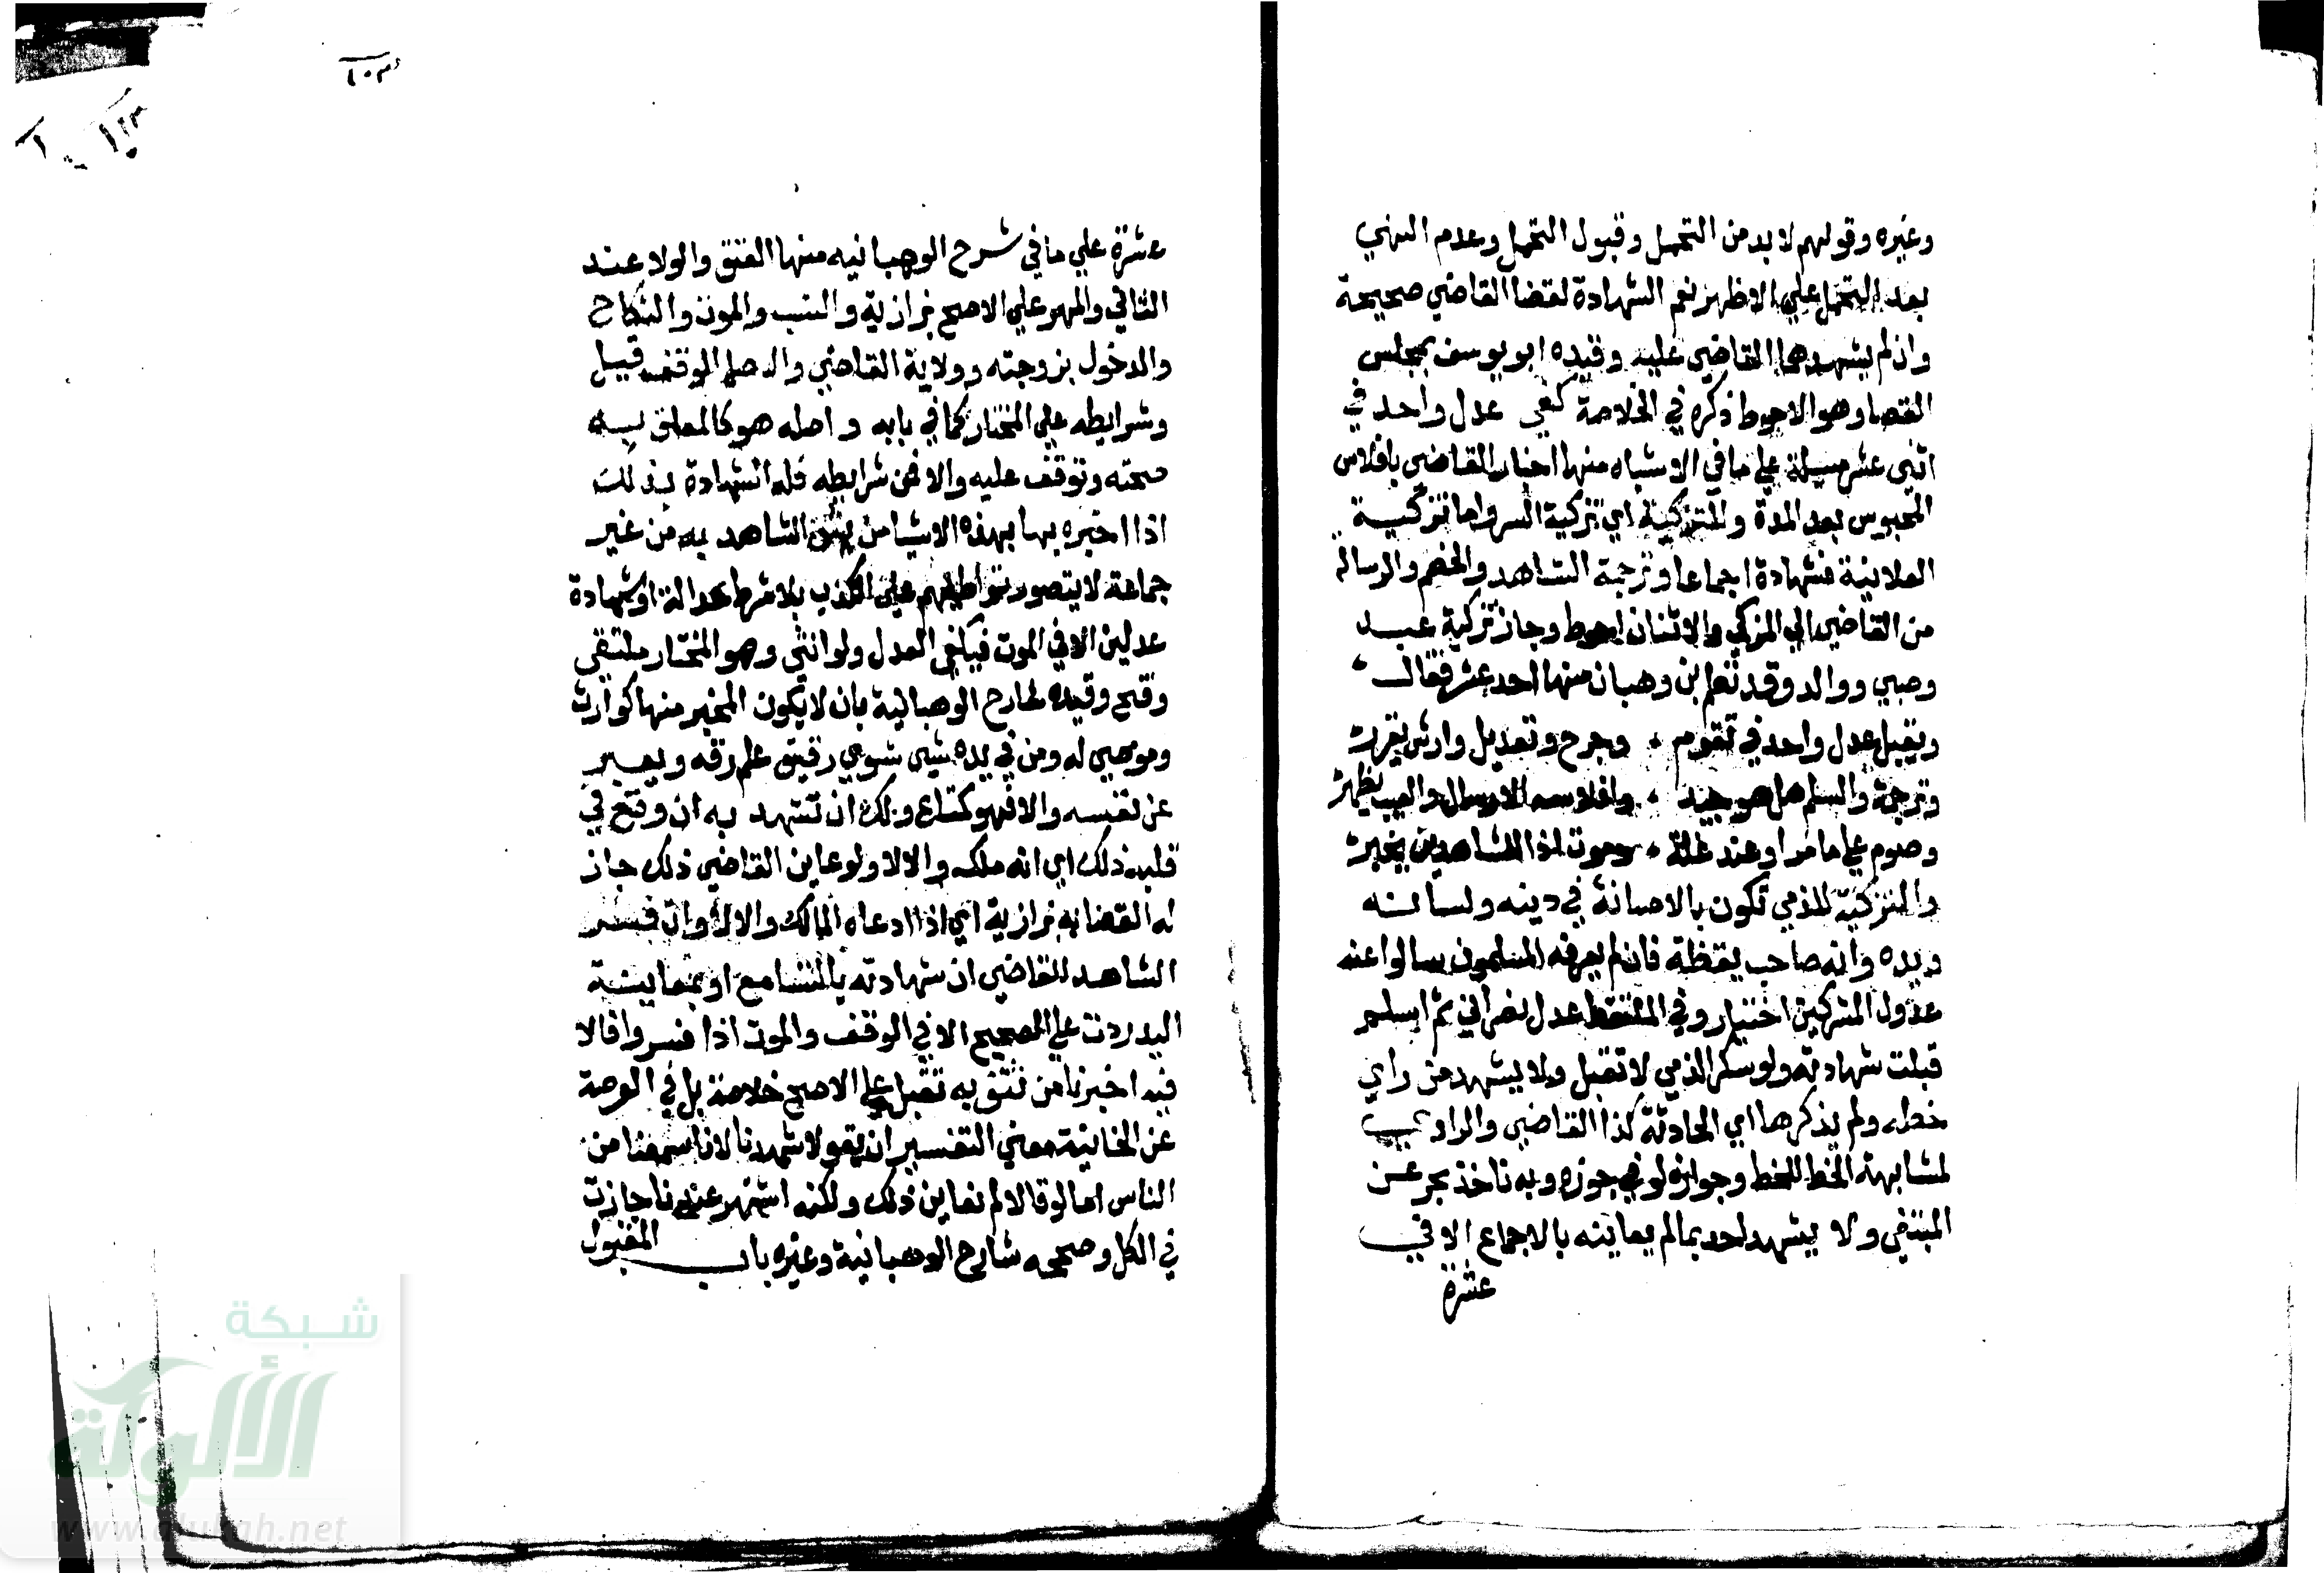 وغيره وقولهم لا بد من التحمل وقبول التحمل وعدم النهي
بعد التحمل علي الاظهر نعم الشهادة لقضا القاضي صحيحة
وان لم يشهدهما القاضي عليه وقيده ابو يوسف بمجلس
القضا وهو الاحوط ذكره في الخلاصة كفي عدل واحد في
اثني عشر مسيلة علي ما في الاشباه منها اخبار القاضي بافلاس
المحبوس بعد المدة والتزكية اي تزكية السر واما تزكية
العلانية فشهادة اجماعا وترجمة الشاهد والخصم والرسالة
من القاضي الي المزكي والاثنان احوط وجاز تزكية عبد
وصبي ووالد وقد نظم ابن وهبان منها احد عشر فقال
ويقبل عدل واحد في تقوم وجرح وتعديل وارش يقدر
وترجمة والسلم هل هو جيد وافلاسه الارسال والعيب يظهر
وصوم علي ما مر او عند علة وموت اذا للشاهدين يخبر
والتزكية للذمي تكون بالامانة في دينه ولسانه
ويده وانه صاحب يقظة فان لم يعرفه المسلمون سالوا عنه
عدول المشركين اختيار وفي الملتقط عدل نصراني ثم اسلم
قبلت شهادته ولو سكر الذمي لا تقبل ولا يشهد من راي
خطه ولم يذكرها اي الحادثة كذا القاضي والراوي
لمشابهة الخط للخط وجوازه لو في حوزه وبه ناخذ بحر عن
المبتغي ولا يشهد احد بما لم يعاينه بالاجماع الا في
عشرة
عشرة علي ما في شرح الوهبانيه منها العتق والولا عند
الثاني والمهر علي الاصح بزازية والنسب والموت والنكاح
والدخول بزوجته وولاية القاضي واصل الوقف قيل
وشرايطه علي المختار كما في بابه واصله هو كالمعلق به
صحته وتوقف عليه والا فمن شرايطه فله الشهادة بذلك
اذا اخبره بها بهذه الاشيا من يثق الشاهد به من غير
جماعة لا يتصور تواطيهم علي الكذب بلا شرط عدالة او شهادة
عدلين الا في الموت فيكفي العدل ولو انثي وهو المختار ملتقي
وفتح وقيده شارح الوهبانية بان لا يكون المخبر منها كوارث
وموصي له ومن في يده شي سوي رقيق علم رقه ويعبر
عن نفسه والا فهو كمتاع ولك ان تشهد به ان وقع في
قلبه ذلك اي انه ملكه والا لا ولو عاين القاضي ذلك جاز
له القضا به بزازية اي اذا ادعاه المالك والا لا وان فسر
الشاهد للقاضي ان شهادته بالتسامع او بمعاينة
اليد ردت علي الصحيح الا في الوقف والموت اذا فسروا قالا
فيه اخبرنا من نثق به تقبل علي الاصح خلاصة بل في العرمية
عن الخانية معني التفسير ان يقولا شهدنا لانا سمعنا من
الناس اما لو قالا لم نعاين ذلك ولكنه اشتهر عندنا جازت
في الكل وصححه شارح الوهبانية وغيره باب المقبول
شبكة
الألوكة
www.alukah.net